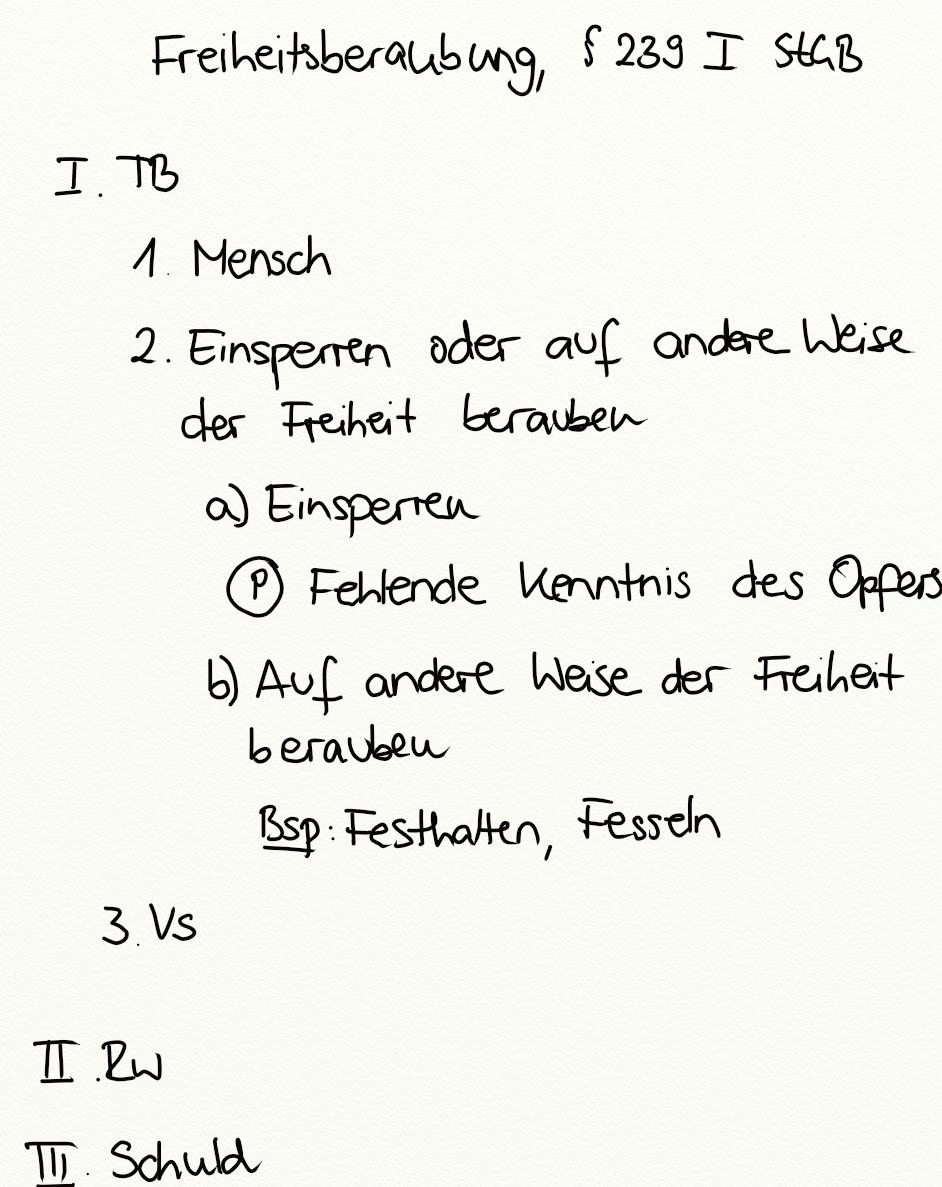 Freiheitsberaubung, § 239 I StGB
I. TB
1. Mensch
2. Einsperren oder auf andere Weise
der Freiheit berauben
a) Einsperren
(P) Fehlende Kenntnis des Opfers
b) Auf andere Weise der Freiheit
berauben
Bsp: Festhalten, Fesseln
3. Vs
II. Rw
III. Schuld